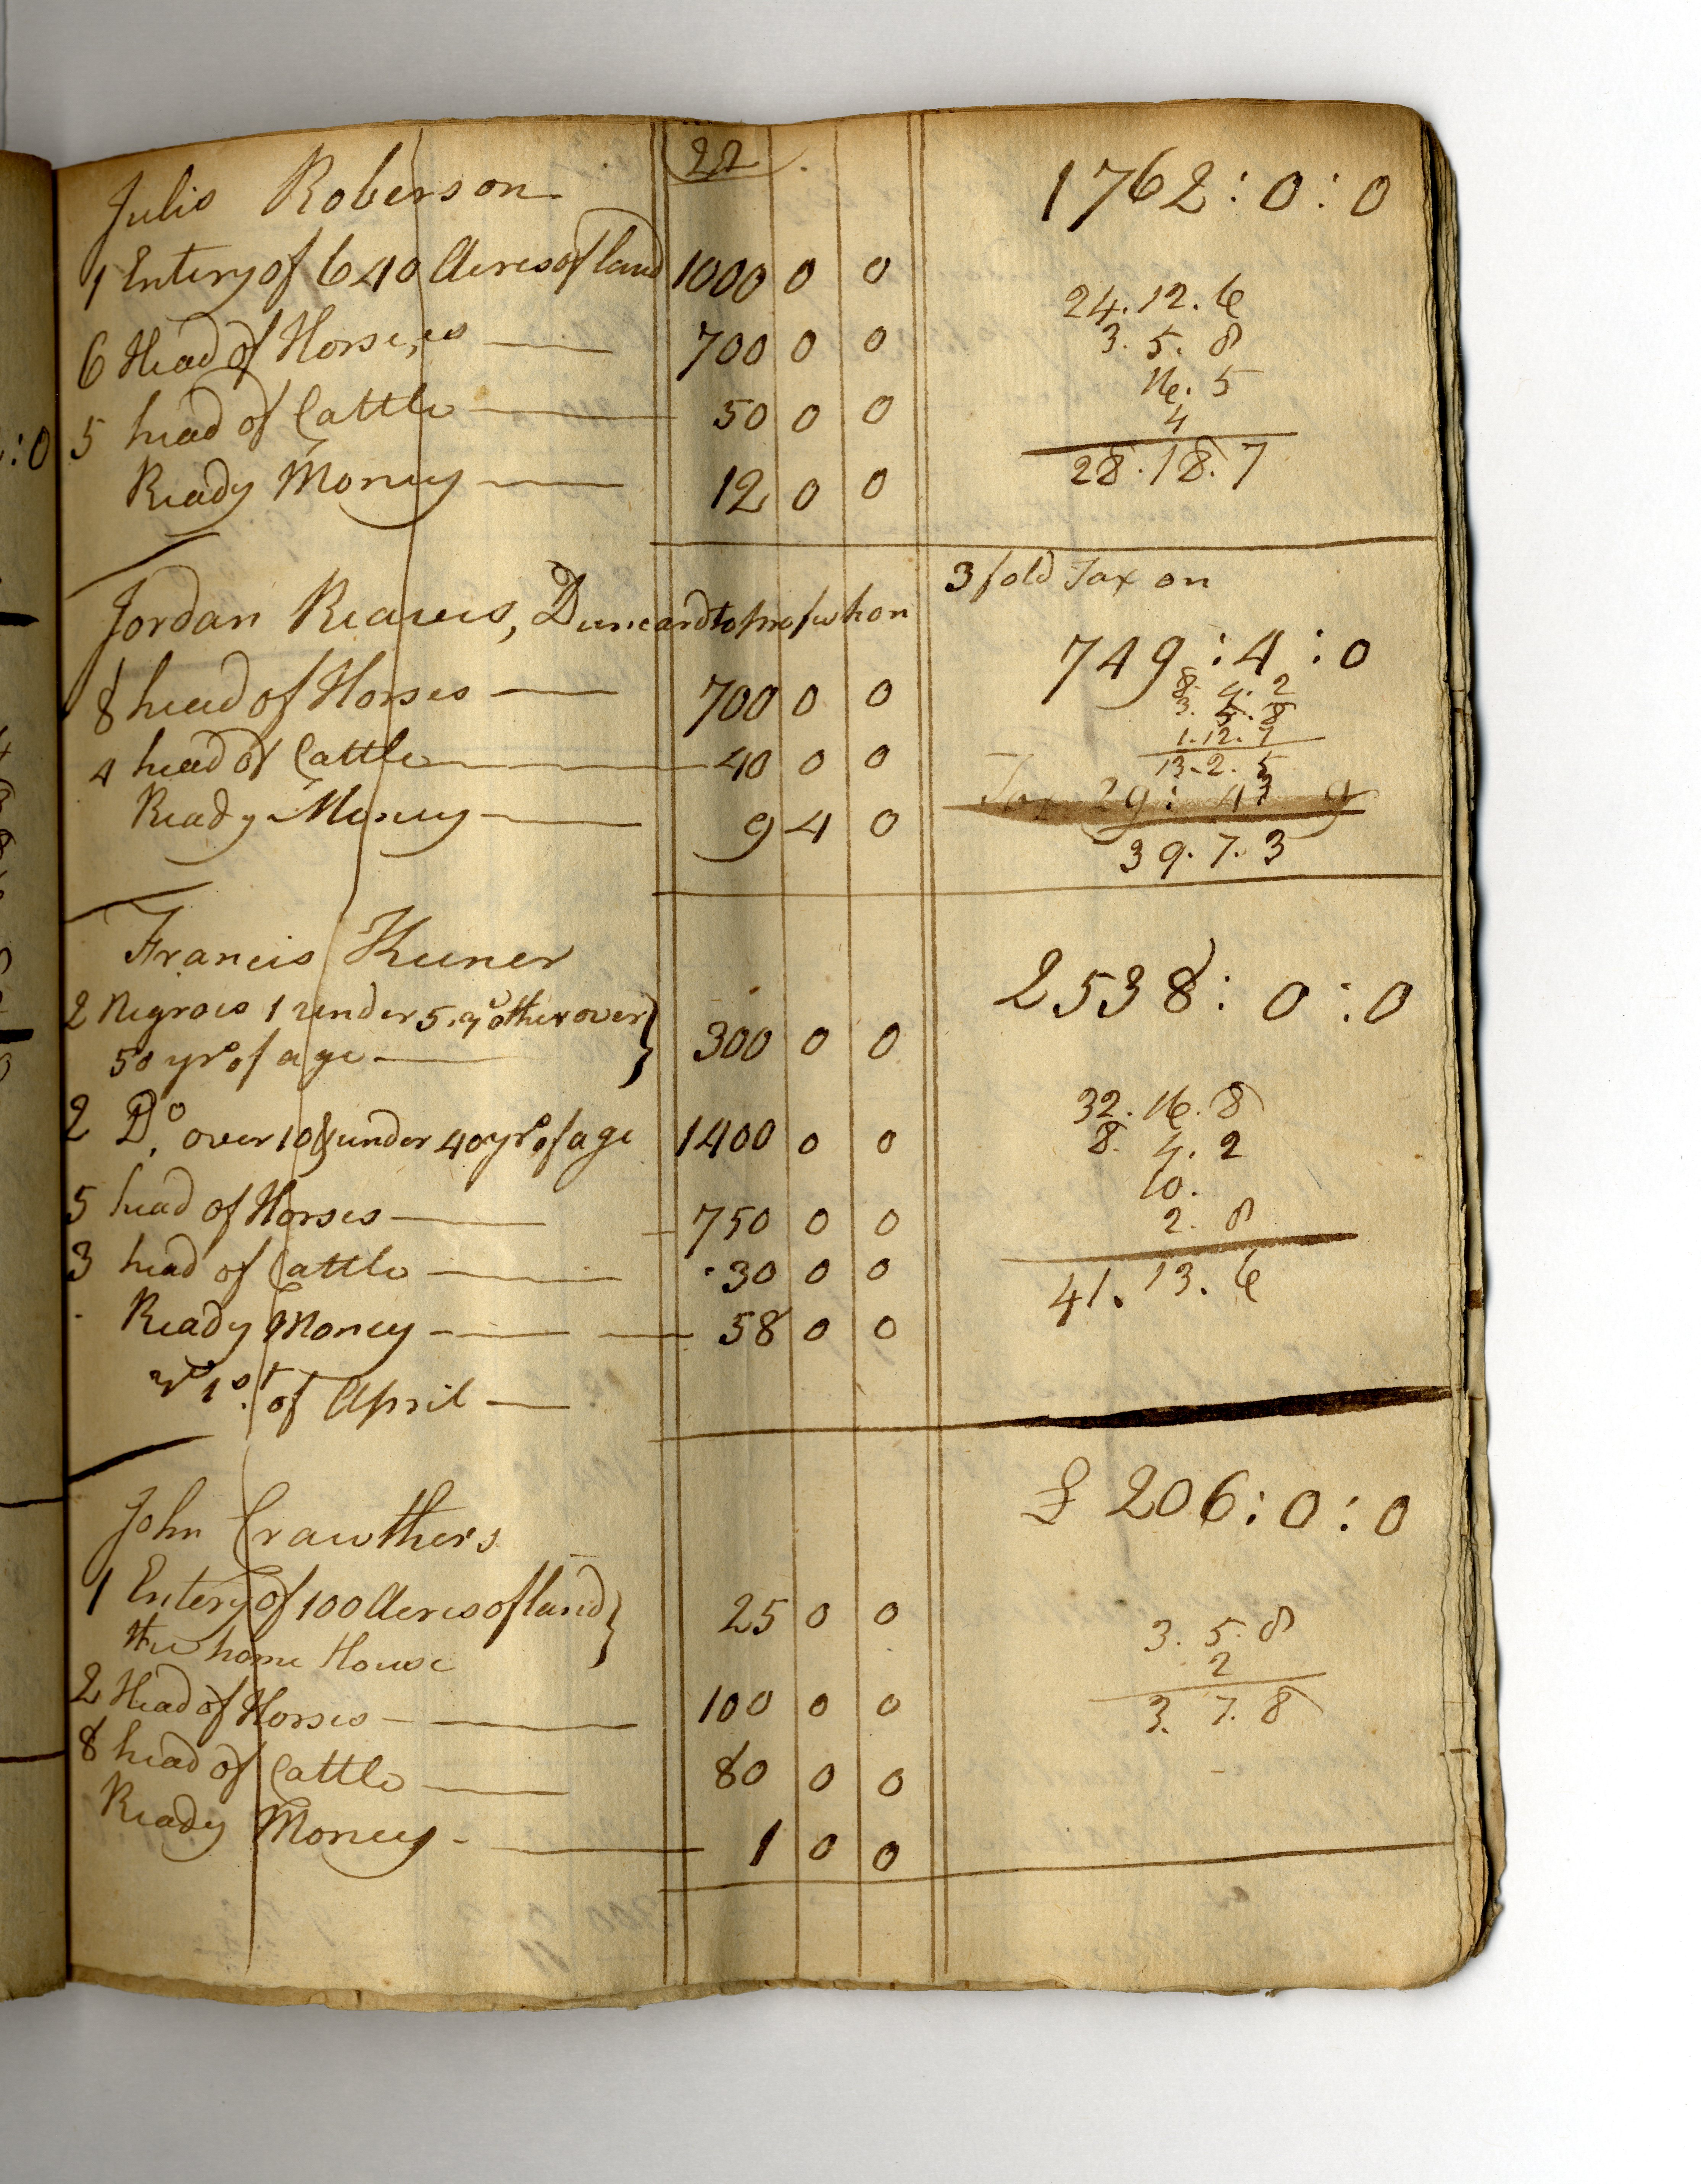 22
Julis Roberson 1762:0:0
1 Entery of 640 Acres of land 1000 0 0
24.12.6
6 Head of Horses,es 700 0 0
3.5.8
16.5
5 head of Cattle 50 0 0
4
28.18.7
Ready Money 12 0 0
3 fold Tax on
Jordan Reaves, Duncard to
749:4:0
8 head of Horses 700 0 0
8.4.2
3.5.8
1.12.7
4 head of Cattle 40 0 0
13.2.5
Tax 29: 9
Ready Money 9 4 0
39.7.3
Francis
2538:0:0
2 Negroes 1 under 5 y other over
50 yrs of age 300 0 0
32.16.8
2 Do. over 10 & under 40 yrs of age 1400 0 0
8.4.2
10.
5 head of Horses 750 0 0
2.8
3 head of Cattle 30 0 0
41.13.6
Ready Money 58 0 0
1st of April
£ 206:0:0
John Crawthers
1 Entery of 100 Acres of land
the home House 25 0 0
3.5.8
2
2 Head of Horses 100 0 0
3.7.8
8 head of Cattle 80 0 0
Ready Money 1 0 0